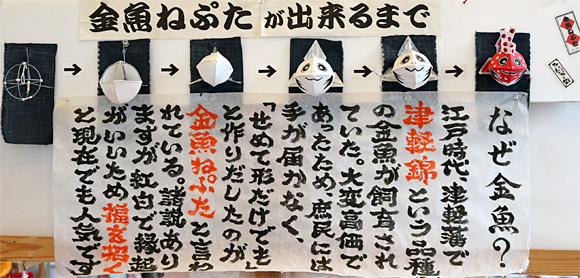 金魚ねぷたが出来るまで
なぜ金魚?
江戸時代、津軽藩で
津軽錦という品種
の金魚が飼育され
ていた。大変高価で
あったため、庶民には
手が届かなく、
「せめて形だけでも
と作りだしたのが
金魚ねぷたと言わ
れている。諸説あり
ますが、紅白で縁起
がいいため福を招く
と現在でも人気です